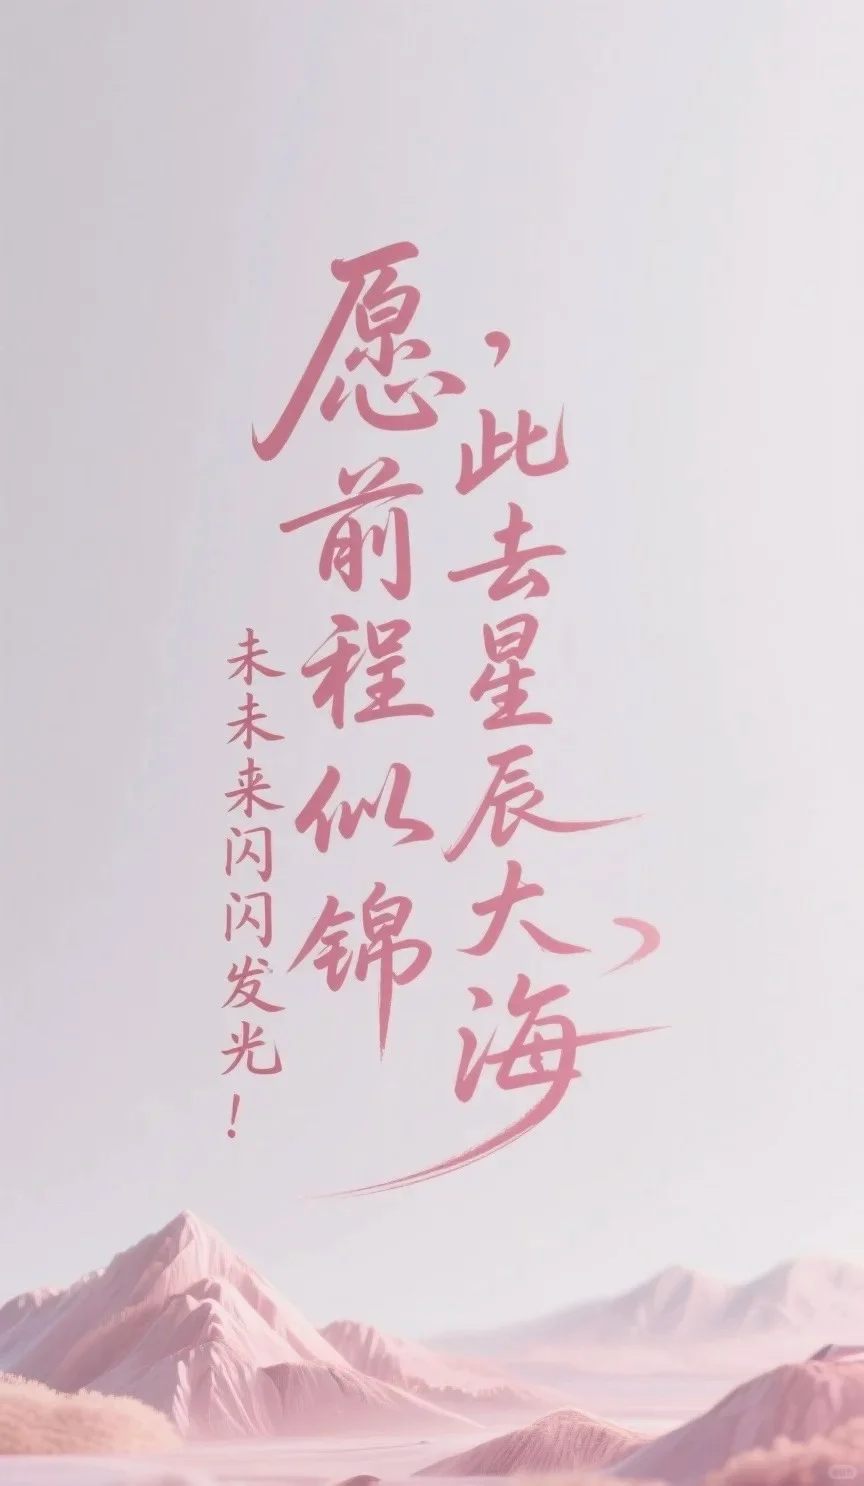 愿前程似锦
，此去星辰大海，
未未来闪闪发光！